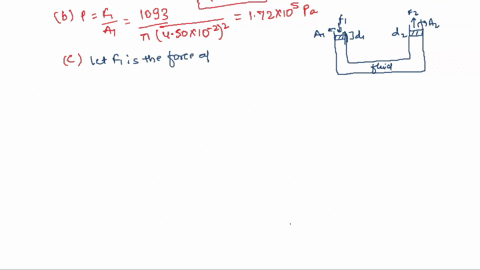 (b) P = F₁/A₁ = 1093/π(4.50×10⁻²)² = 1.72×10⁵ Pa
(C) Let F₁ is the force of
F₁
A₁
d₁
F₂
A₂
d₂
fluid